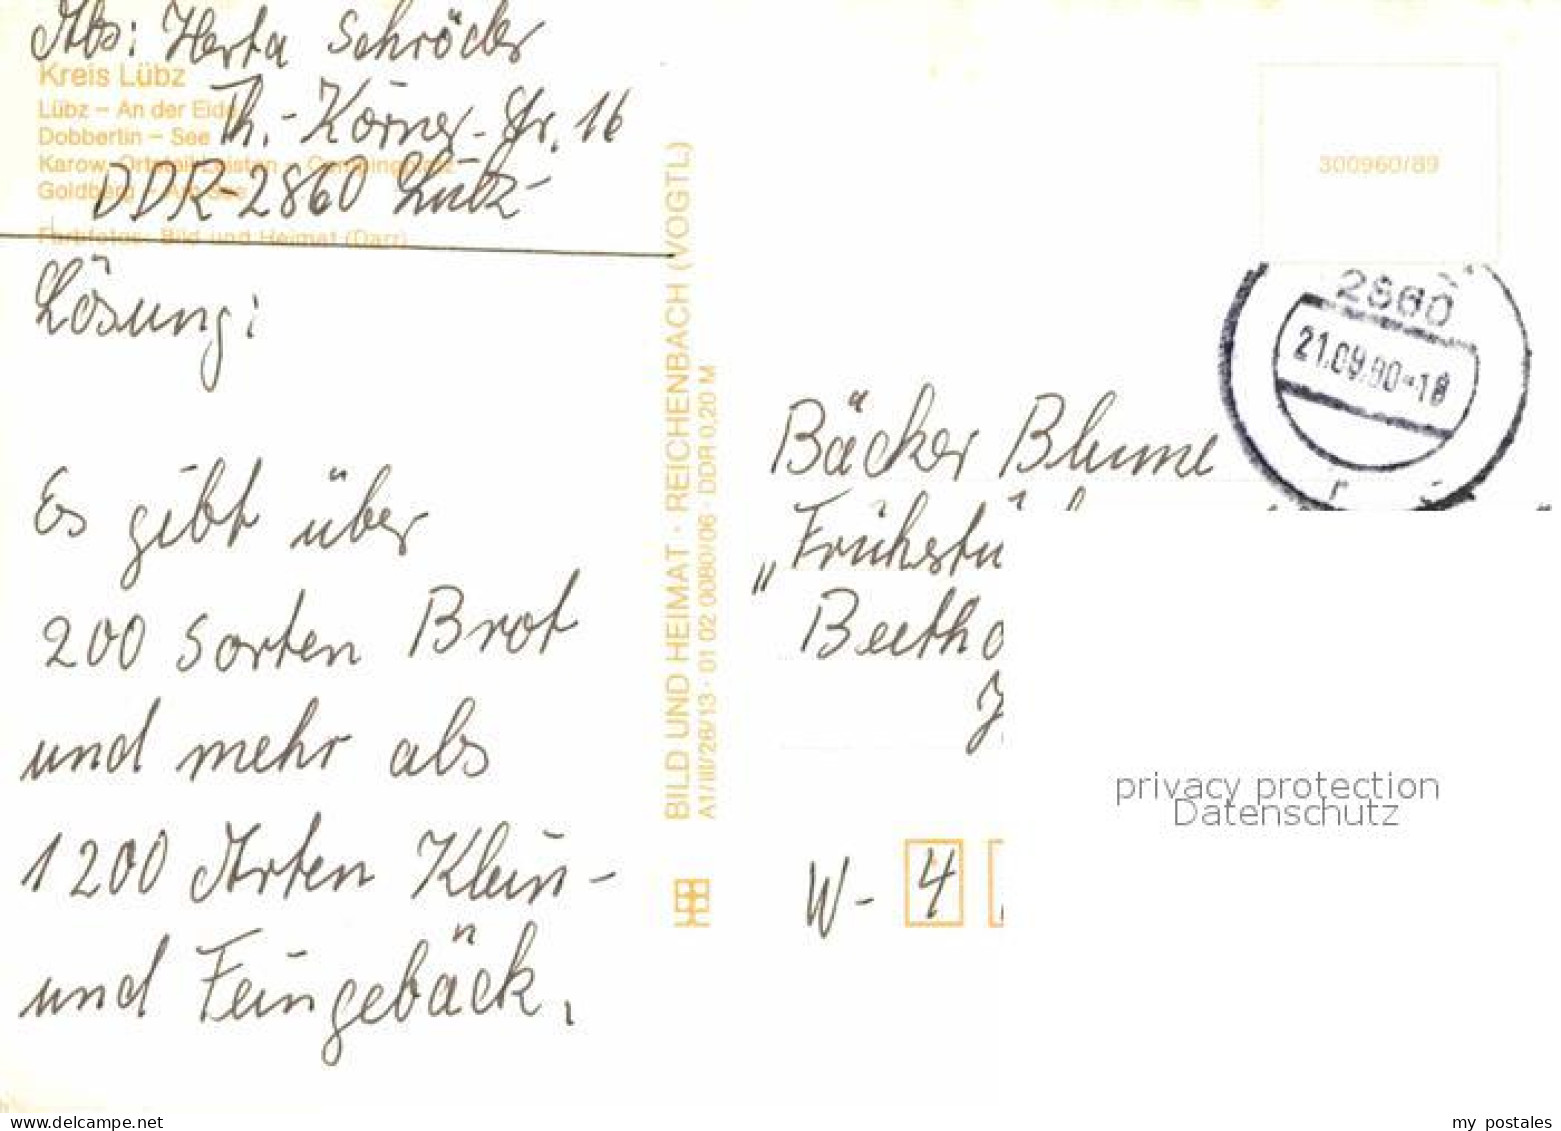 Abs: Herta Schröder
Th.-Körner-Str. 16
DDR-2860 Lübz
Kreis Lübz
Lübz – An der Elde
Dobbertin – See
Karow, Ortsteil Leisten – Campingplatz
Goldberg – Am See
Farbfotos: Bild und Heimat (Darr)
Lösung:
Es gibt über
200 Sorten Brot
und mehr als
1200 Arten Klein-
und Feingebäck.
BILD UND HEIMAT · REICHENBACH (VOGTL)
A1/III/26/13 · 01 02 0080/06 · DDR 0,20 M
300960/89
2860
21.09.90-18
Bäcker Blume
„Frühstü
Beetho
W- 4
privacy protection
Datenschutz
my postales